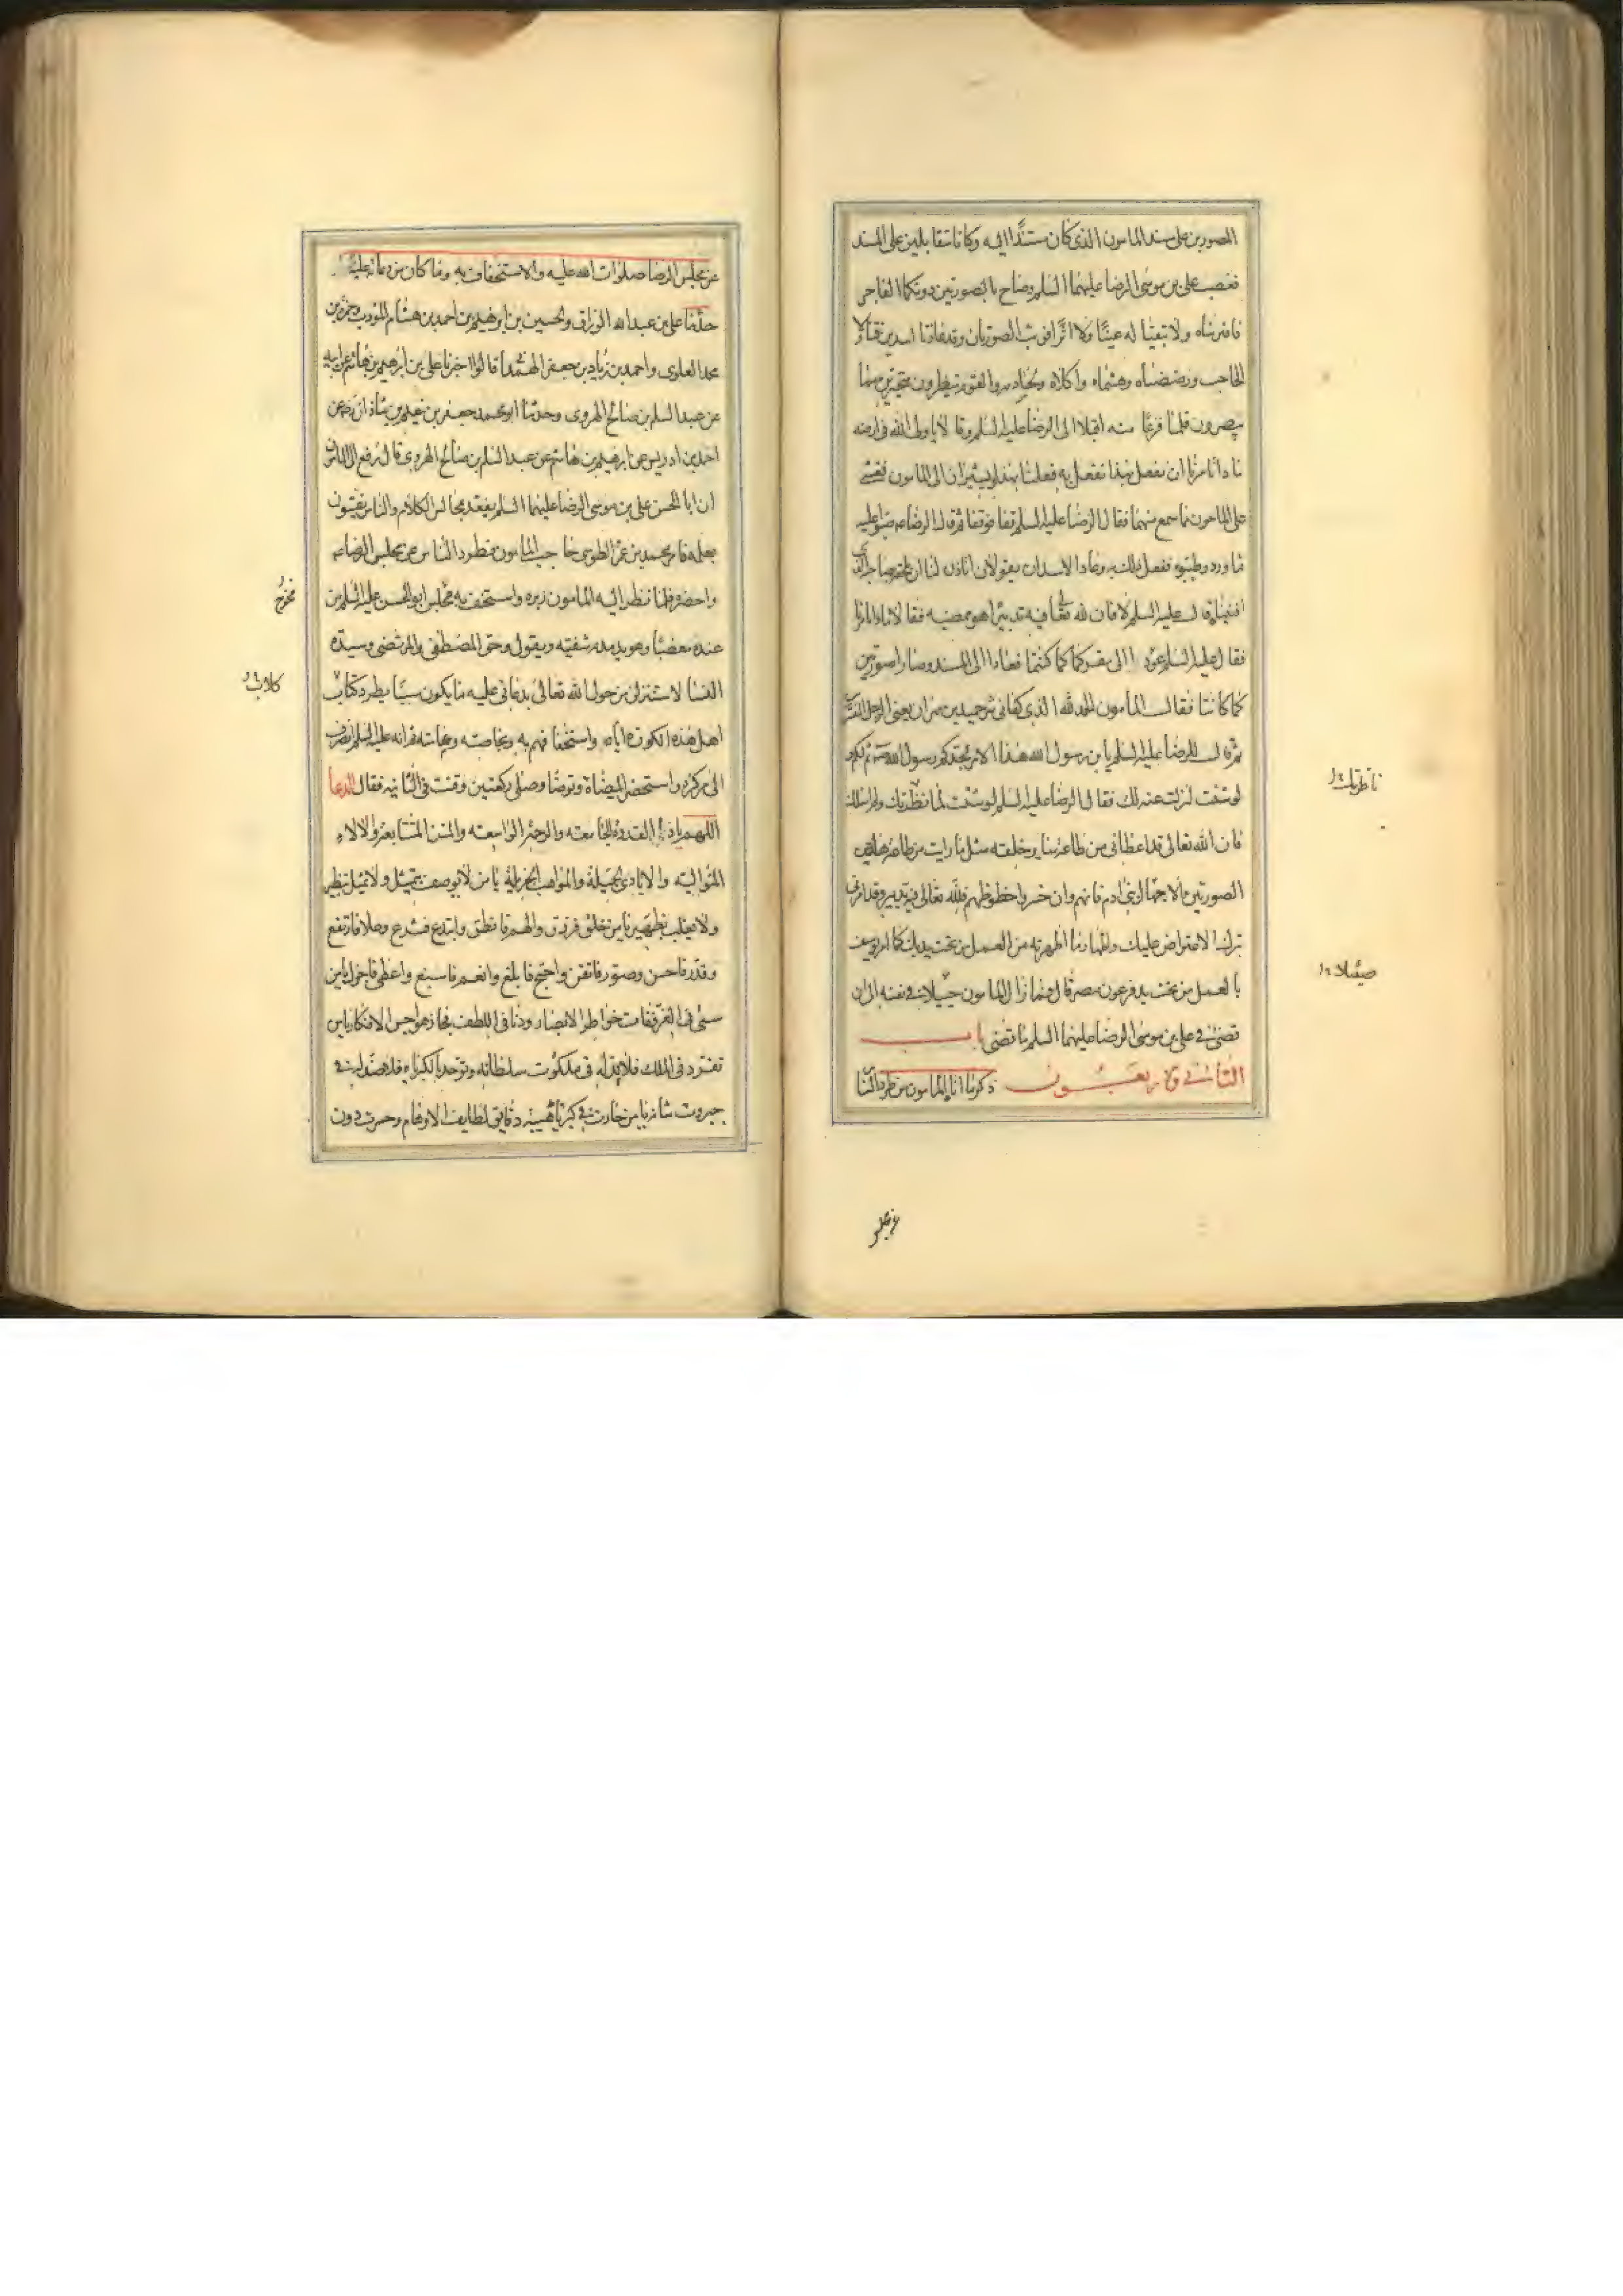 الصورتين على مسند المامون الذى كان مستندا اليه وكانا متقابلين على المسند
فغضب على بن موسى الرضا عليهما السلم وصاح بالصورتين دونكما الفاجر
فافترساه ولا تبقيا له عينا ولا اثرا فوثبت الصورتان وقد عادتا اسدين فتناولا
الحاجب ورضضاه وهشماه واكلاه ولحسا دمه والقوم ينظرون متحيرين مما
يبصرون فلما فرغا منه اقبلا الى الرضا عليه السلم وقالا يا ولى الله فى ارضه
ماذا تامرنا ان نفعل بهذا نفعل به فعلنا بهذا يشيران الى المامون فغشى
على المامون مما سمع منهما فقال الرضا عليه السلم قفا فوقفا ثم قال الرضا ع صبوا عليه
ماء ورد وطيبوه ففعل ذلك به وعاد الاسدان يقولان اتاذن لنا ان نلحقه بصاحبه الذى
افنيناه قال عليه السلم لا فان لله تعالى فيه تدبيرا هو ممضيه فقالا ماذا تامرنا
فقال عليه السلم عودا الى مقركما كما كنتما فعادا الى المسند وصارا صورتين
كما كانتا فقال المأمون الحمد لله الذى كفانى شر حميد بن مهران يعنى الرجل المفترس
ثم قال للرضا عليه السلم يابن رسول الله هذا الامر لجدكم رسول الله ص ثم لكم
لو شئت لنزلت عنه لك فقال الرضا عليه السلم لو شئت لما ناظرتك ولم اسئلك
فان الله تعالى قد اعطانى من طاعة سائر خلقه مثل ما رايت من طاعة هاتين
الصورتين الا جهال بنى ادم فانهم وان خسروا حظوظهم فلله تعالى فيه تدبير وقد امرنى
بترك الاعتراض عليك واظهار ما اظهرته من العمل من تحت يدك كما امر يوسف
بالعمل من تحت يد فرعون مصر قال فما زال المامون ضئيلا فى نفسه الى ان
قضى فى على بن موسى الرضا عليهما السلم ما قضى باب
الثانى والاربعون ذكر ما اتاه المامون من طرد الناس
ناظرتك
ضئيلا
عن مجلس
عن مجلس الرضا صلوات الله عليه والاستخفاف به وما كان من دعائه عليه
حدثنا على بن عبد الله الوراق والحسين بن ابرهيم بن احمد بن هشام المؤدب وحمزة بن
محمد العلوى واحمد بن زياد بن جعفر الهمدانى قالوا اخبرنا على بن ابرهيم بن هاشم عن ابيه
عن عبد السلم بن صالح الهروى وحدثنا ابو محمد جعفر بن نعيم بن شاذان رض عن
احمد بن ادريس عن ابرهيم بن هاشم عن عبد السلم بن صالح الهروى قال رفع الى المامون
ان ابا الحسن على بن موسى الرضا عليهما السلم يعقد مجالس الكلام والناس يفتتنون
بعلمه فامر محمد بن عمرو الطوسى حاجب المامون فطرد الناس عن مجلس الرضا ع
واحضره فلما نظر اليه المامون زبره واستخف به فخرج ابو الحسن عليه السلم من
عنده مغضبا وهو يدمدم شفتيه ويقول وحق المصطفى والمرتضى وسيدة
النساء لاستنزلن من حول الله تعالى بدعائى عليه ما يكون سببا لطرد كلاب
اهل هذه الكورة اياه واستخفافهم به وبخاصته وعامته ثم انه عليه السلم انصرف
الى مركزه واستحضر الميضاة وتوضا وصلى ركعتين وقنت فى الثانيه فقال الدعا
اللهم يا ذا القدرة الجامعته والرحمة الواسعته والمنن المتتابعة والالاء
المتواليته والايادى الجميلة والمواهب الجزيلة يا من لا يوصف بتمثيل ولا يمثل بنظير
ولا يغلب بظهير يا من خلق فرزق والهم فانطق وابتدع فشرع وعلا فارتفع
وقدر فاحسن وصور فاتقن واحتج فابلغ وانعم فاسبغ واعطى فاجزل يا من
سمى فى العز ففات خواطر الابصار ودنا فى اللطف فجاز هواجس الافكار يا من
تفرد فى الملك فلا ند له فى ملكوت سلطانه وتوحد بالكبرياء فلا ضد له فى
جبروت شانه يا من حارت فى كبرياء هيبته دقايق لطايف الاوهام وحسرت دون
فخرج
كلاب